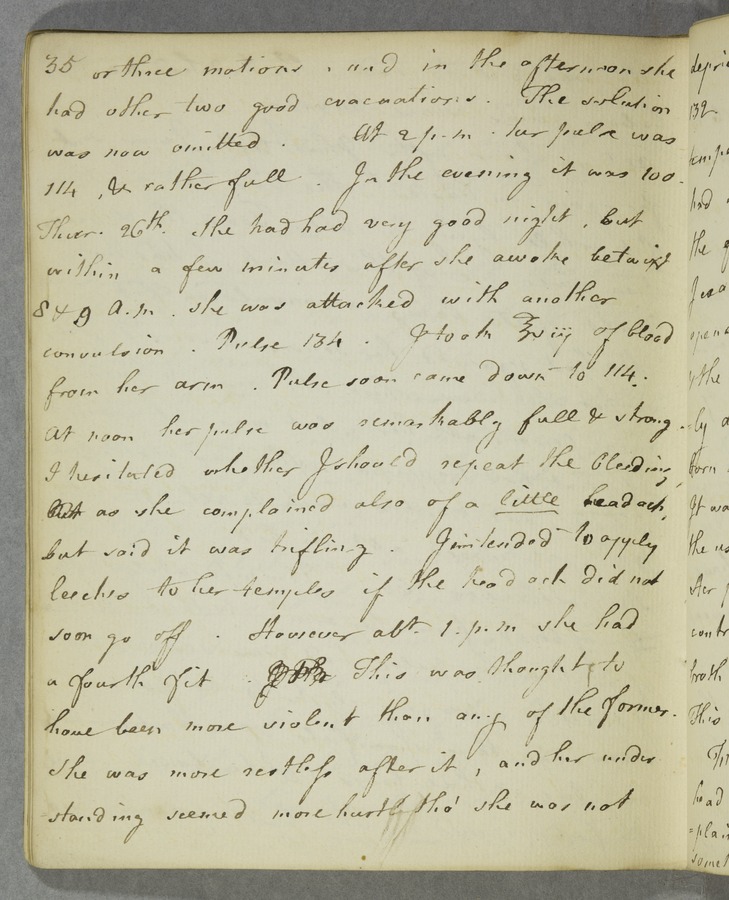 35 or three motions, and in the afternoon she
had other two good evacuations. The solution
was now omitted. At 2 p.m. her pulse was
114, & rather full. In the evening it was 100.
Thur. 26th. She had had very good night, but
within a few minutes after she awoke betwixt
8 & 9 A.m. she was attacked with another
convulsion. Pulse 134. I took ℥viij of blood
from her arm. Pulse soon came down to 114.
At noon her pulse was remarkably full & strong.
I hesitated whether I should repeat the bleeding,
as she complained also of a little headach,
but said it was trifling. I intended to apply
leeches to her temples if the head ach did not
soon go off. However abt. 1. p.m she had
a fourth fit. This was thought to
have been more violent than any of the former.
She was more restless after it, and her under
standing seemed more hurt tho' she was not